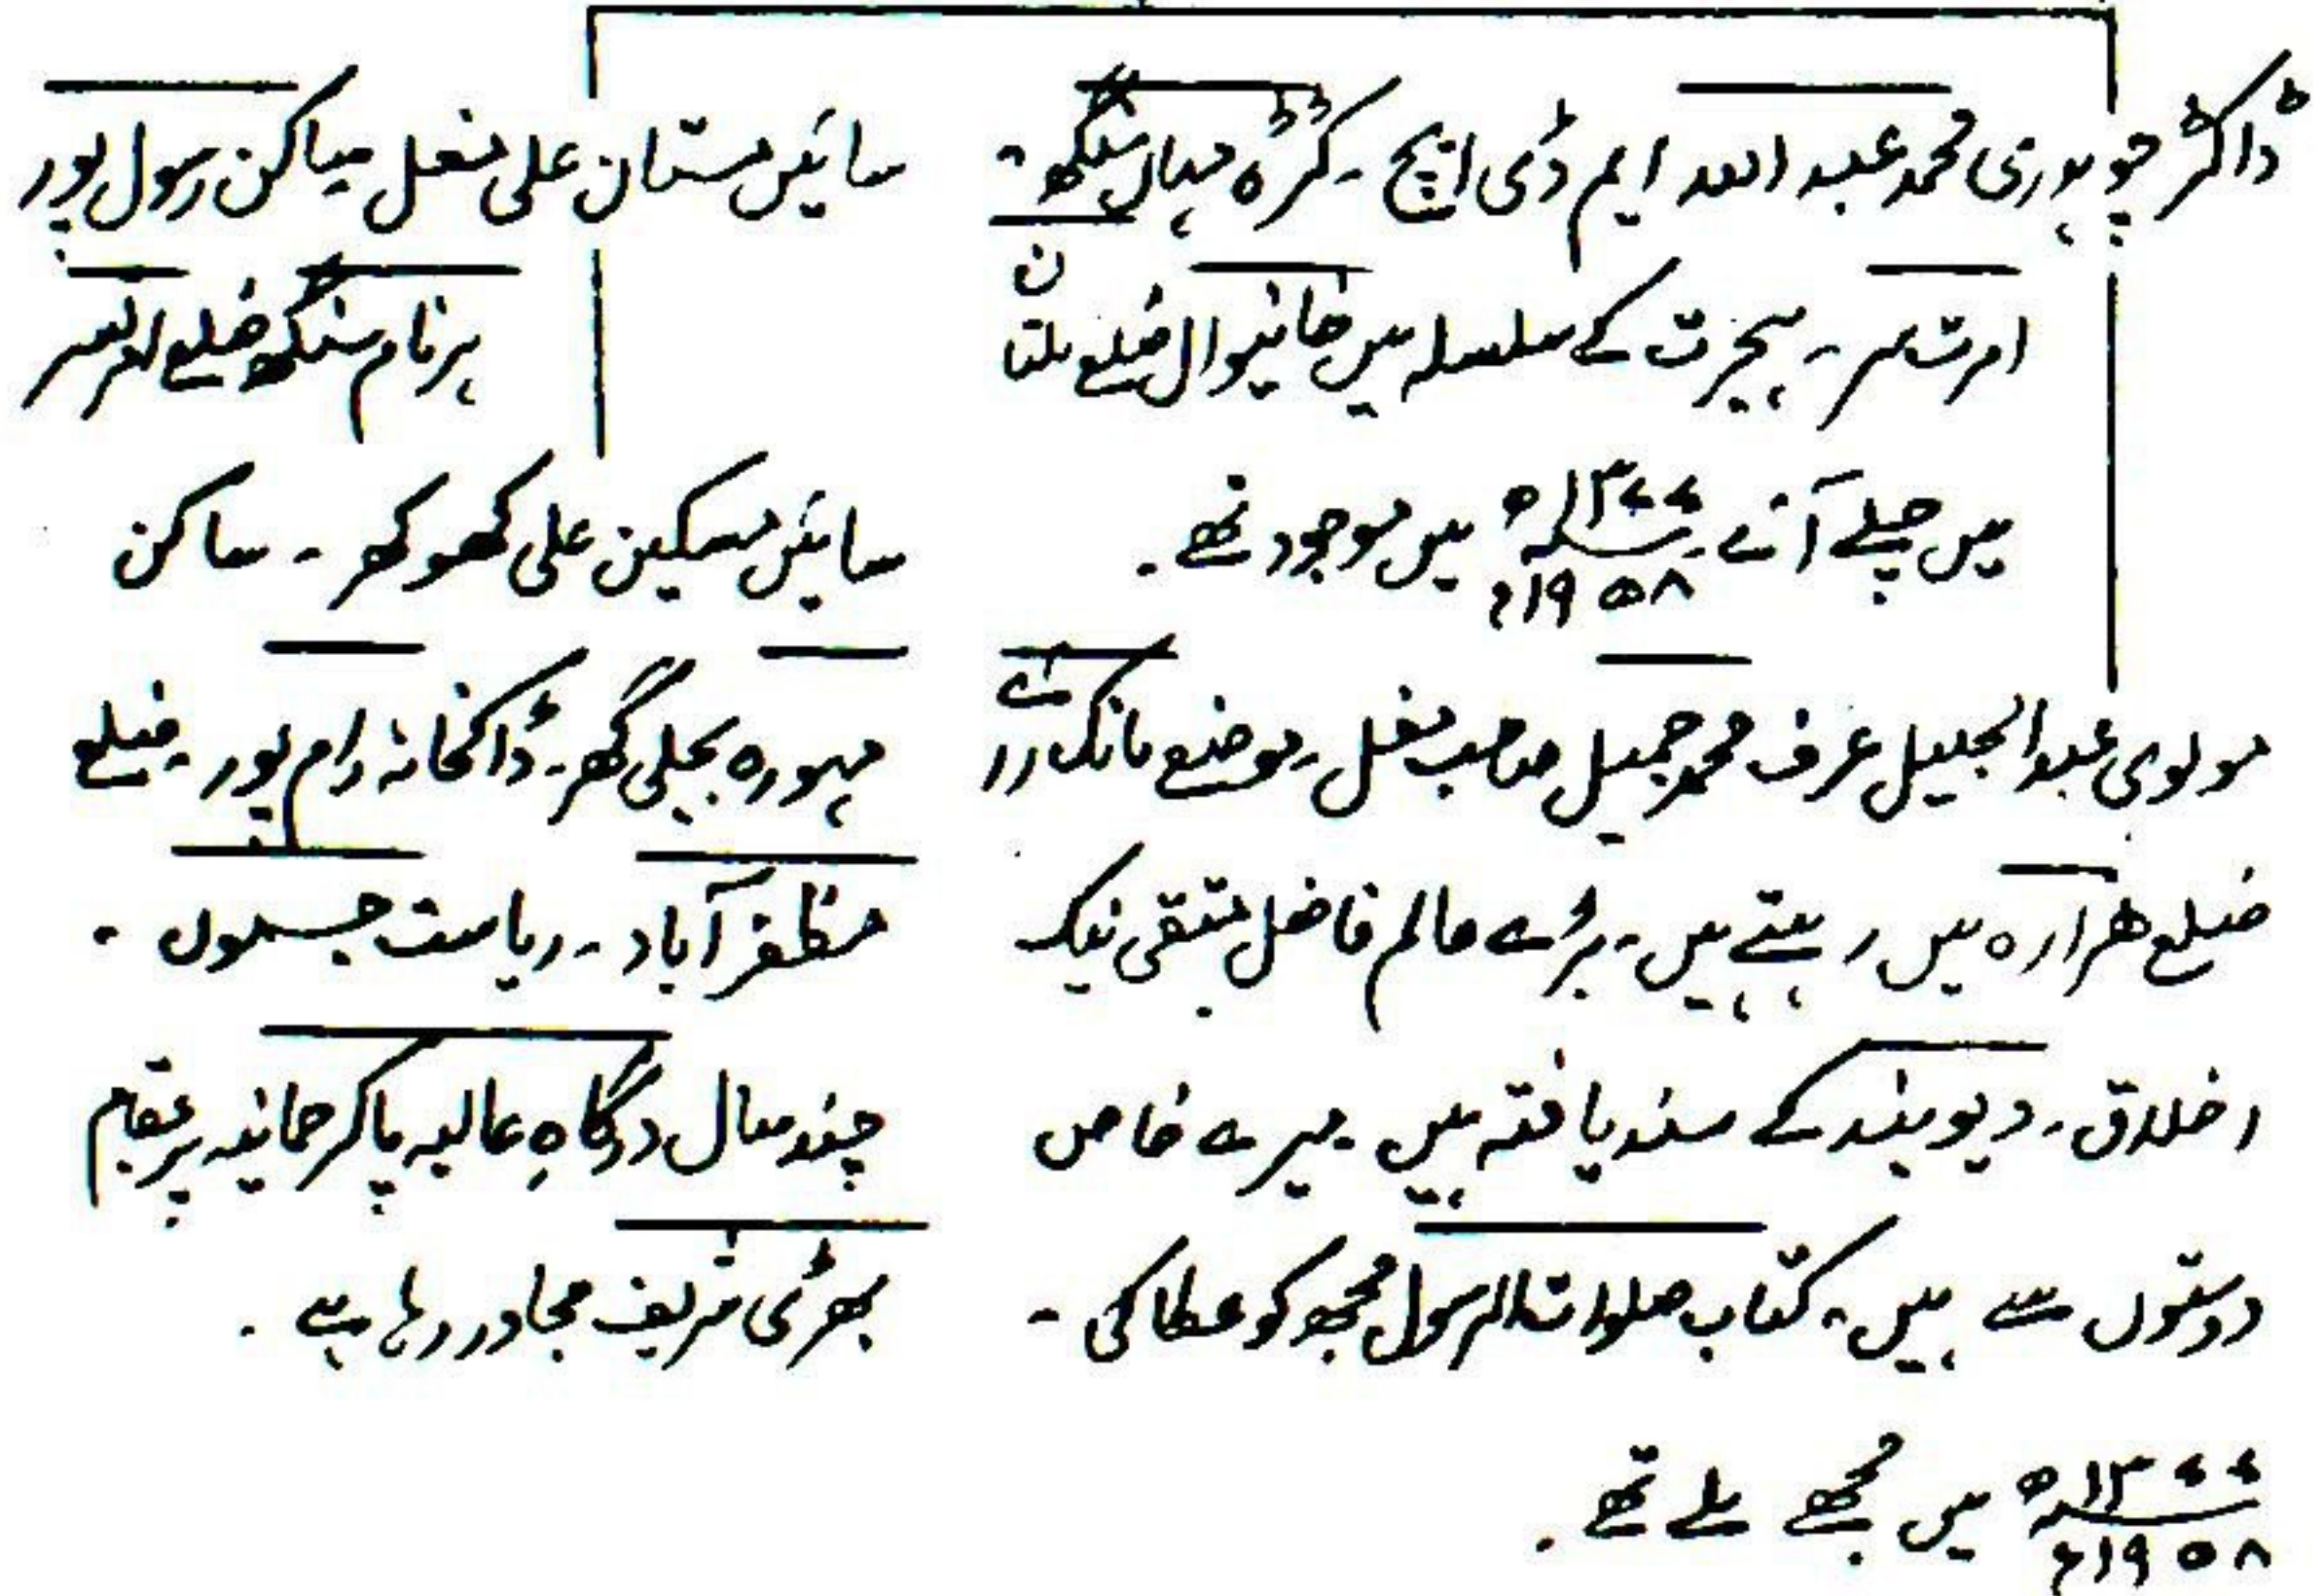 ڈاکٹر چوہدری محمد عبد اللہ ایم ڈی ایچ ۔ کٹڑہ مہاں سنگھ ۔
امرتسر ۔ ہجرت کے سلسلہ میں خانیوال ضلع ملتان
میں چلے آئے ۔ ۱۳۷۷ھ / ۱۹۵۸ء میں موجود تھے ۔
مولوی عبد الجلیل عرف محمد جمیل صاحب مغل ۔ موضع مانک رائے
ضلع ھزارہ میں رہتے ہیں ۔ بڑے عالم فاضل متقی نیک
اخلاق ۔ دیوبند کے سند یافتہ ہیں ۔ میرے خاص
دوستوں سے ہیں ۔ کتاب صلوات الرسول مجھ کو عطا کی ۔
۱۳۷۷ھ / ۱۹۵۸ء میں مجھے ملے تھے ۔
سائیں مستان علی مغل ساکن رسول پور
ہرنام سنگھ ضلع امرتسر
سائیں مسکین علی کھوکھر ۔ ساکن
مہورہ بجلی گھر ۔ ڈاکخانہ رام پور ۔ ضلع
مظفر آباد ۔ ریاست جموں ۔
چند سال درگاہِ عالیہ پاکرحمانیہ پر بمقام
بھڑی شریف مجاور رہا ہے ۔